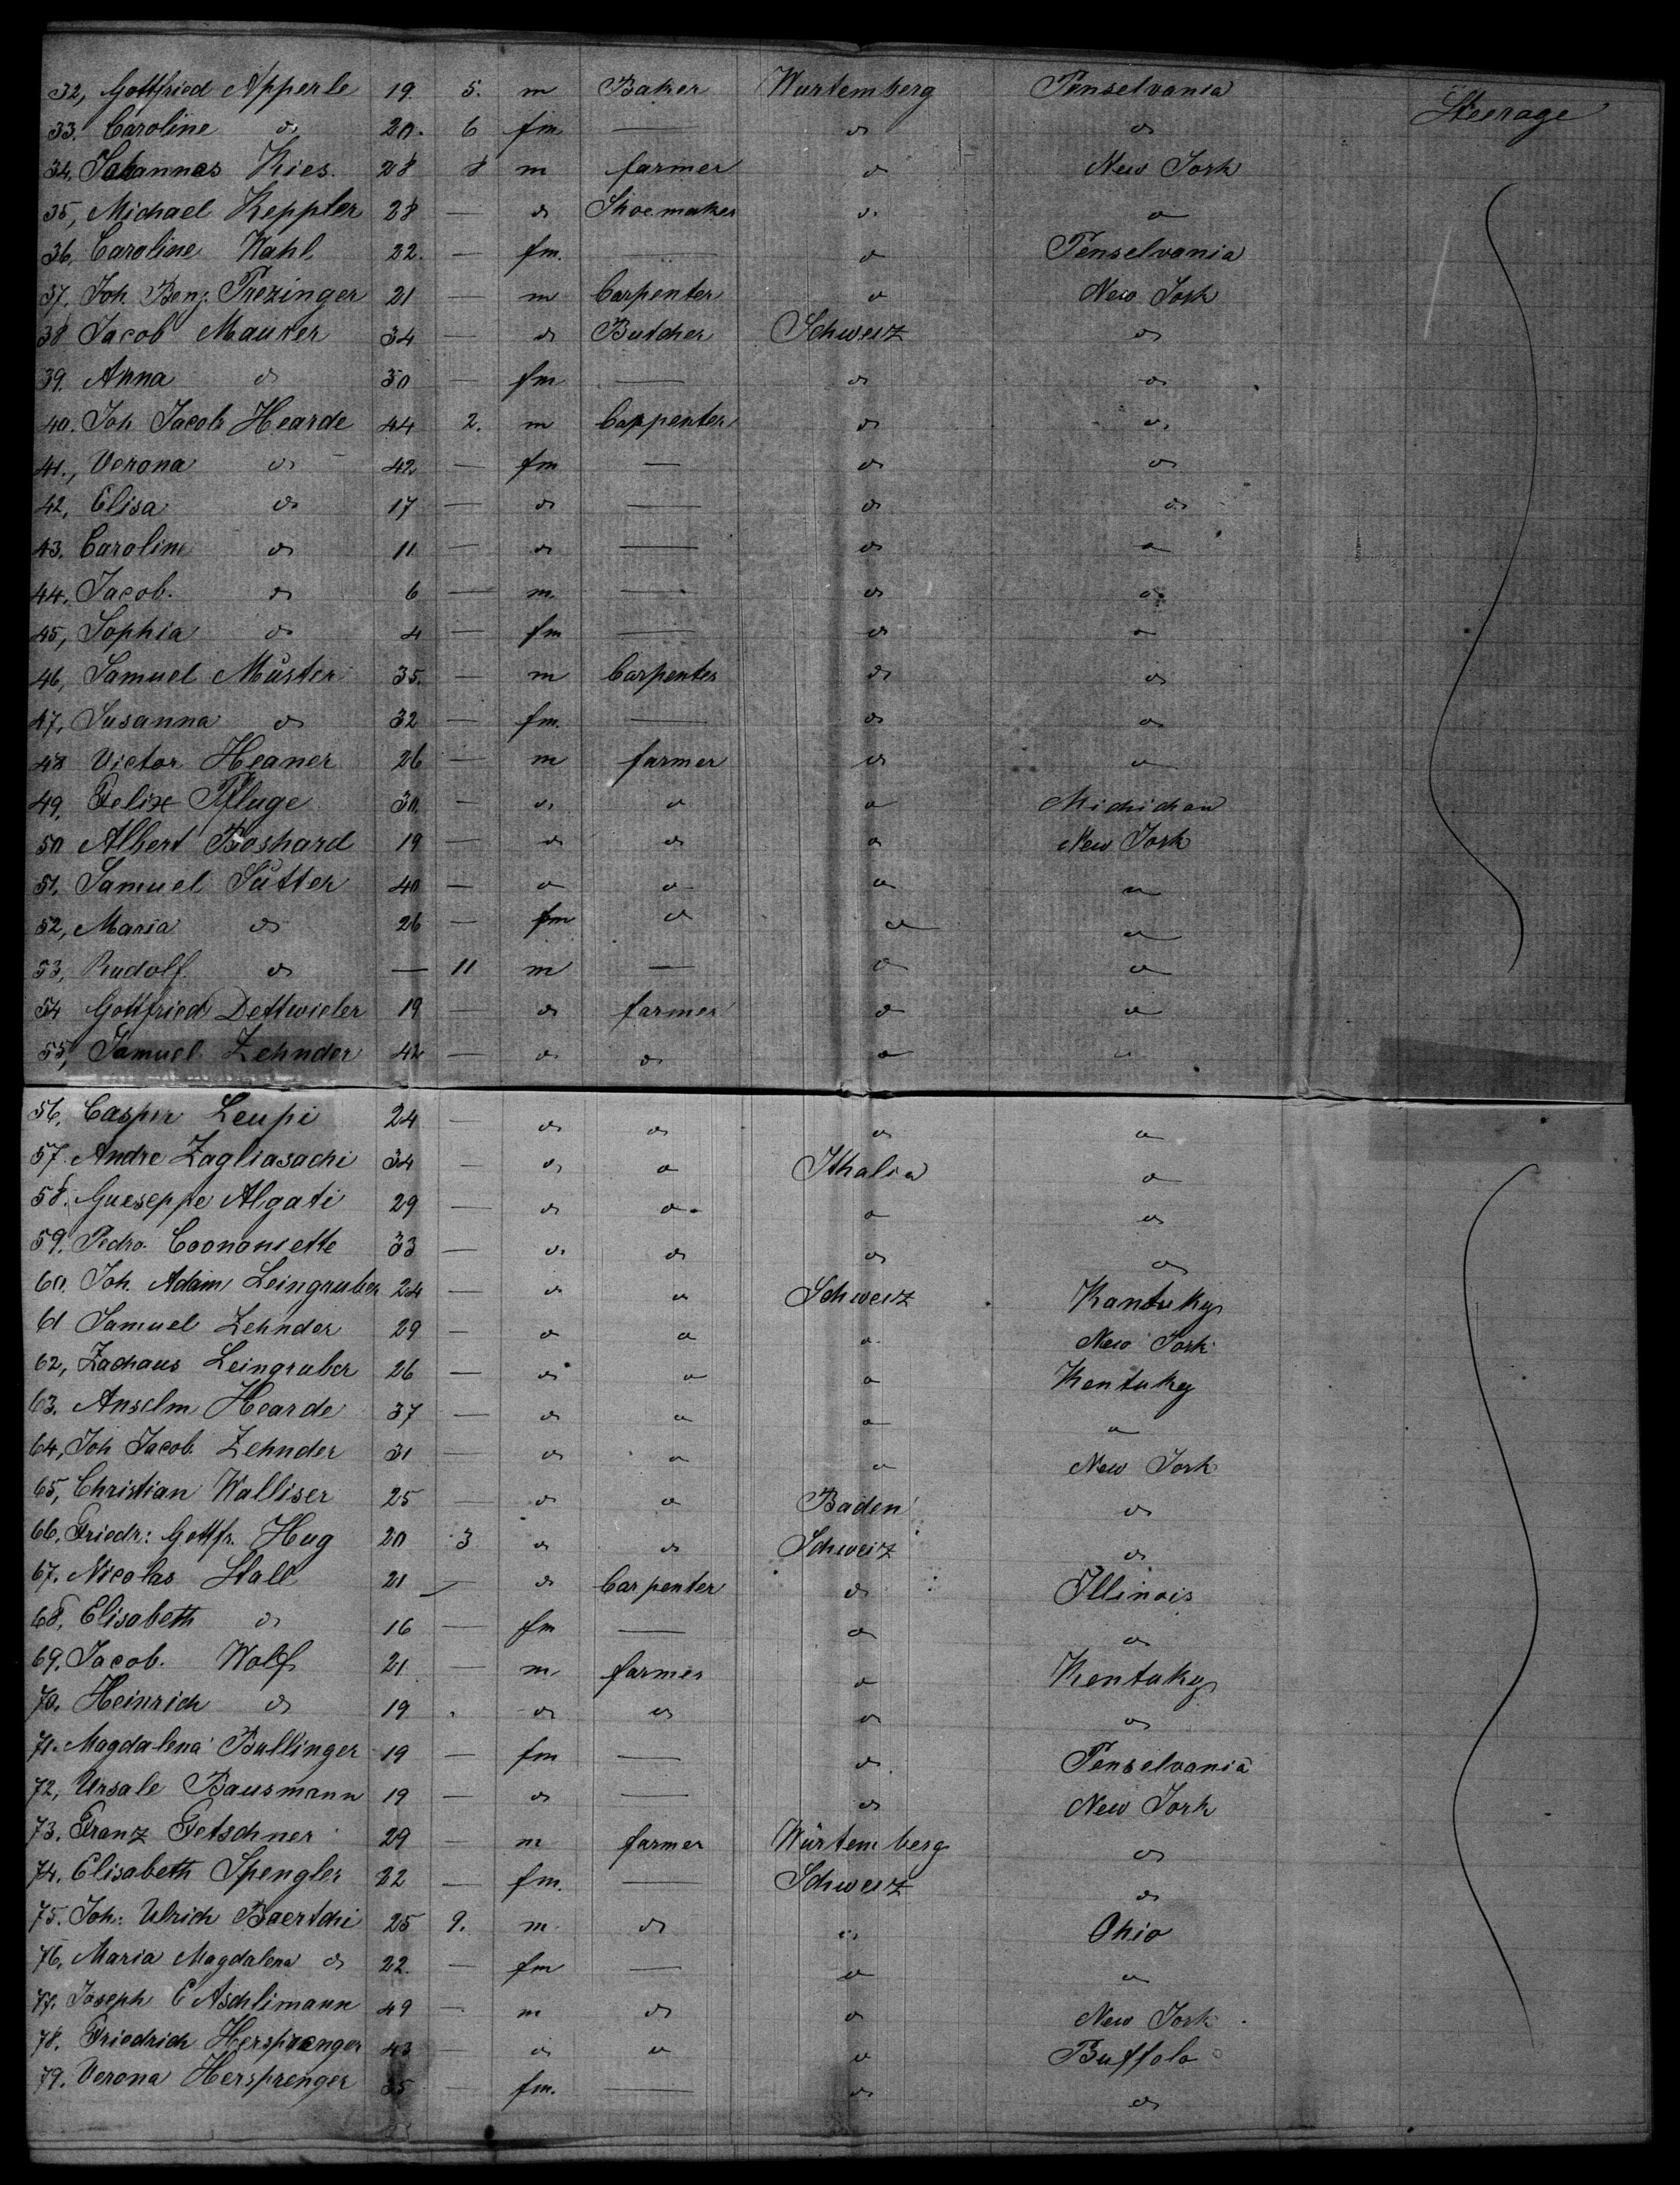 32, Gottfried Apperle 19. 5. m Baker Wurtemberg Penselvania Steerage
33. Caroline do 20. 6 fm — do do
34, Johannes Kies. 28 8 m farmer do New York
35, Michael Keppler 28 — do Shoemaker do do
36, Caroline Wahl 22. — fm. — do Penselvania
37, Joh Benj. Prezinger 21 — m Carpenter do New York
38 Jacob Maurer 34 — do Butcher Schweiz do
39. Anna do 30 — fm — do do
40. Joh Jacob Hearde 44 2. m Carpenter do do
41., Verona do 42 — fm — do do
42, Elisa do 17 — do — do do
43. Caroline do 11 — do — do do
44, Jacob. do 6 — m. — do do
45, Sophia do 4 — fm — do do
46, Samuel Muster 35. — m Carpenter do do
47, Susanna do 32 — fm. — do do
48 Victor Heaner 26 — m farmer do do
49, Felix Pfluge 30. — do do do Michichan
50 Albert Boshard 19 — do do do New York
51. Samuel Sutter 40 — do do do do
52, Maria do 26 — fm do do do
53, Rudolf. do — 11 m — do do
54 Gottfried Dettwieler 19 — do farmer do do
55, Samuel Zehnder 42 — do do do do
56. Casper Leupi 24 — do do do do
57. Andre Zagliasachi 34 — do do Ithalia do
58. Gueseppe Algati 29 — do do do do
59. Pedro. Coononiette 33 — do do do do
60. Joh. Adam Leingruber 24 — do do Schweiz Kantuky
61 Samuel Zehnder 29 — do do do New York
62, Zachaus Leingruber 26 — do do do Kentuky
63. Anselm Hearde 37 — do do do do
64, Joh Jacob. Zehnder 31 — do do do New York
65, Christian Walliser 25 — do do Baden do
66, Friedr: Gottfr. Hug 20 3 do do Schweiz do
67. Nicolas Stall 21 — do Carpenter do Illinois
68, Elisabeth do 16 — fm — do do
69. Jacob. Wolf 21 — m farmer do Kentuky
70. Heinrich do 19 . do do do do
71. Magdalena Bullinger 19 — fm — do Penselvania
72, Ursale Bausmann 19 — do — do New York
73. Franz Fetschner 29 — m farmer Würtemberg do
74. Elisabeth Spengler 22 — fm. — Schweiz do
75. Joh: Ulrich Baertchi 25 9. m do do Ohio
76, Maria Magdalena do 22. — fm — do do
77. Joseph E Aschlimann 49 — m do do New York
78. Friedrich Hersprenger 43 — do do do Buffolo
79. Verona Hersprenger 35 — fm. — do do